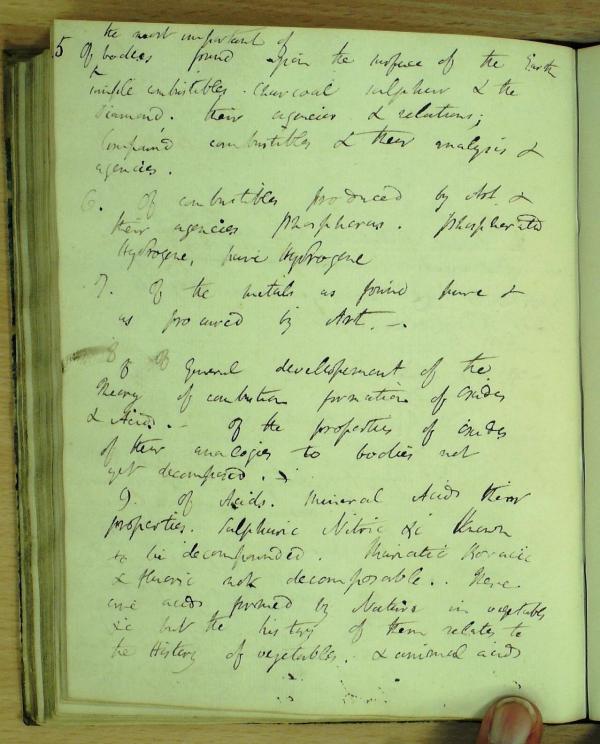 the most important of
5 Of bodies found upon the surface of the Earth
simple combustibles. Charcoal sulphur & the
Diamond. their agencies & relations;
Compound combustibles & their analysis &
agencies.
6. Of combustibles produced by Art. &
their agencies Phosphorus. Phosphorated
Hydrogene, pure Hydrogene
7. Of the metals as found pure &
as procured by Art. —
8 Of General developement of the
theory of combustion formation of oxides
& Acids. — Of the properties of oxides
of their analogies to bodies not
yet decomposed.
9. Of Acids. Mineral Acids their
properties. Sulphuric Nitric &c Known
to be decompounded. Muriatic Boracic
& fluoric not decomposable.. There
are acids formed by Nature in vegetables
&c but the history of them relates to
the History of vegetables. & animal acids